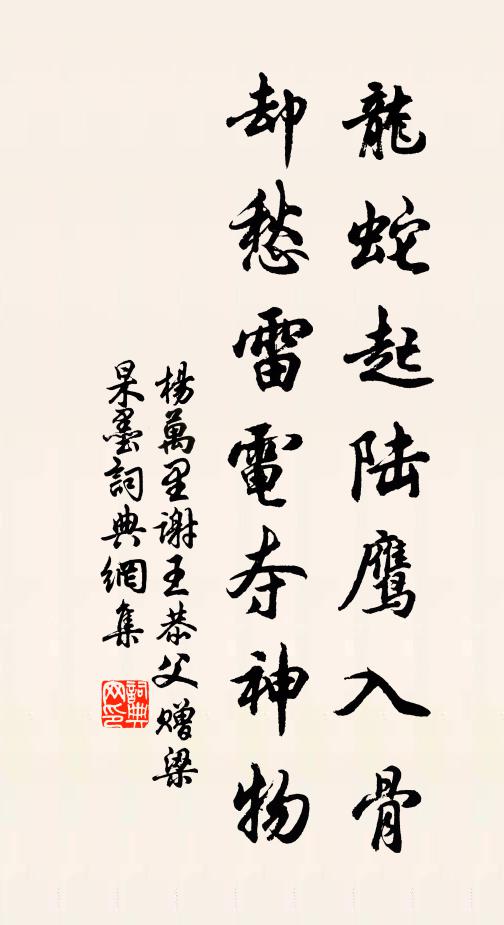 龍蛇起陆鹰入骨
却愁雷電夺神物
楊萬里謝王恭父赠梁
杲墨詞典網集
詞典
网印